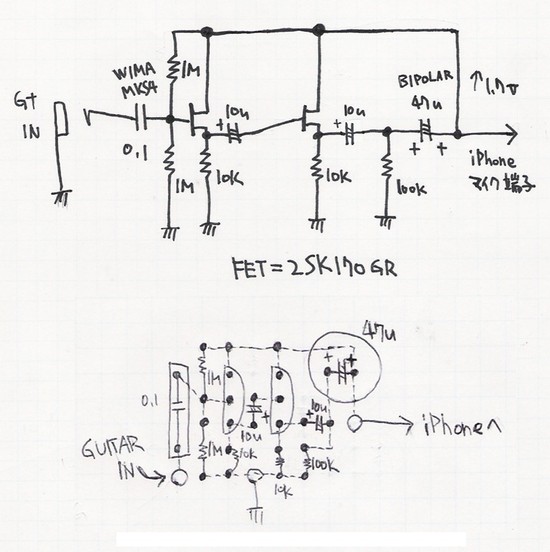 WIMA
MKS4
Gt
IN
0.1
1M
1M
10u
+
10K
10u
+
10K
100K
BIPOLAR
47u
+ +
↑1.7V
iPhone
マイク端子
FET=2SK170GR
47u
+ +
0.1
1M
1M
10u
+
10K
10u
+
10K
100K
GUITAR
IN
iPhoneへ